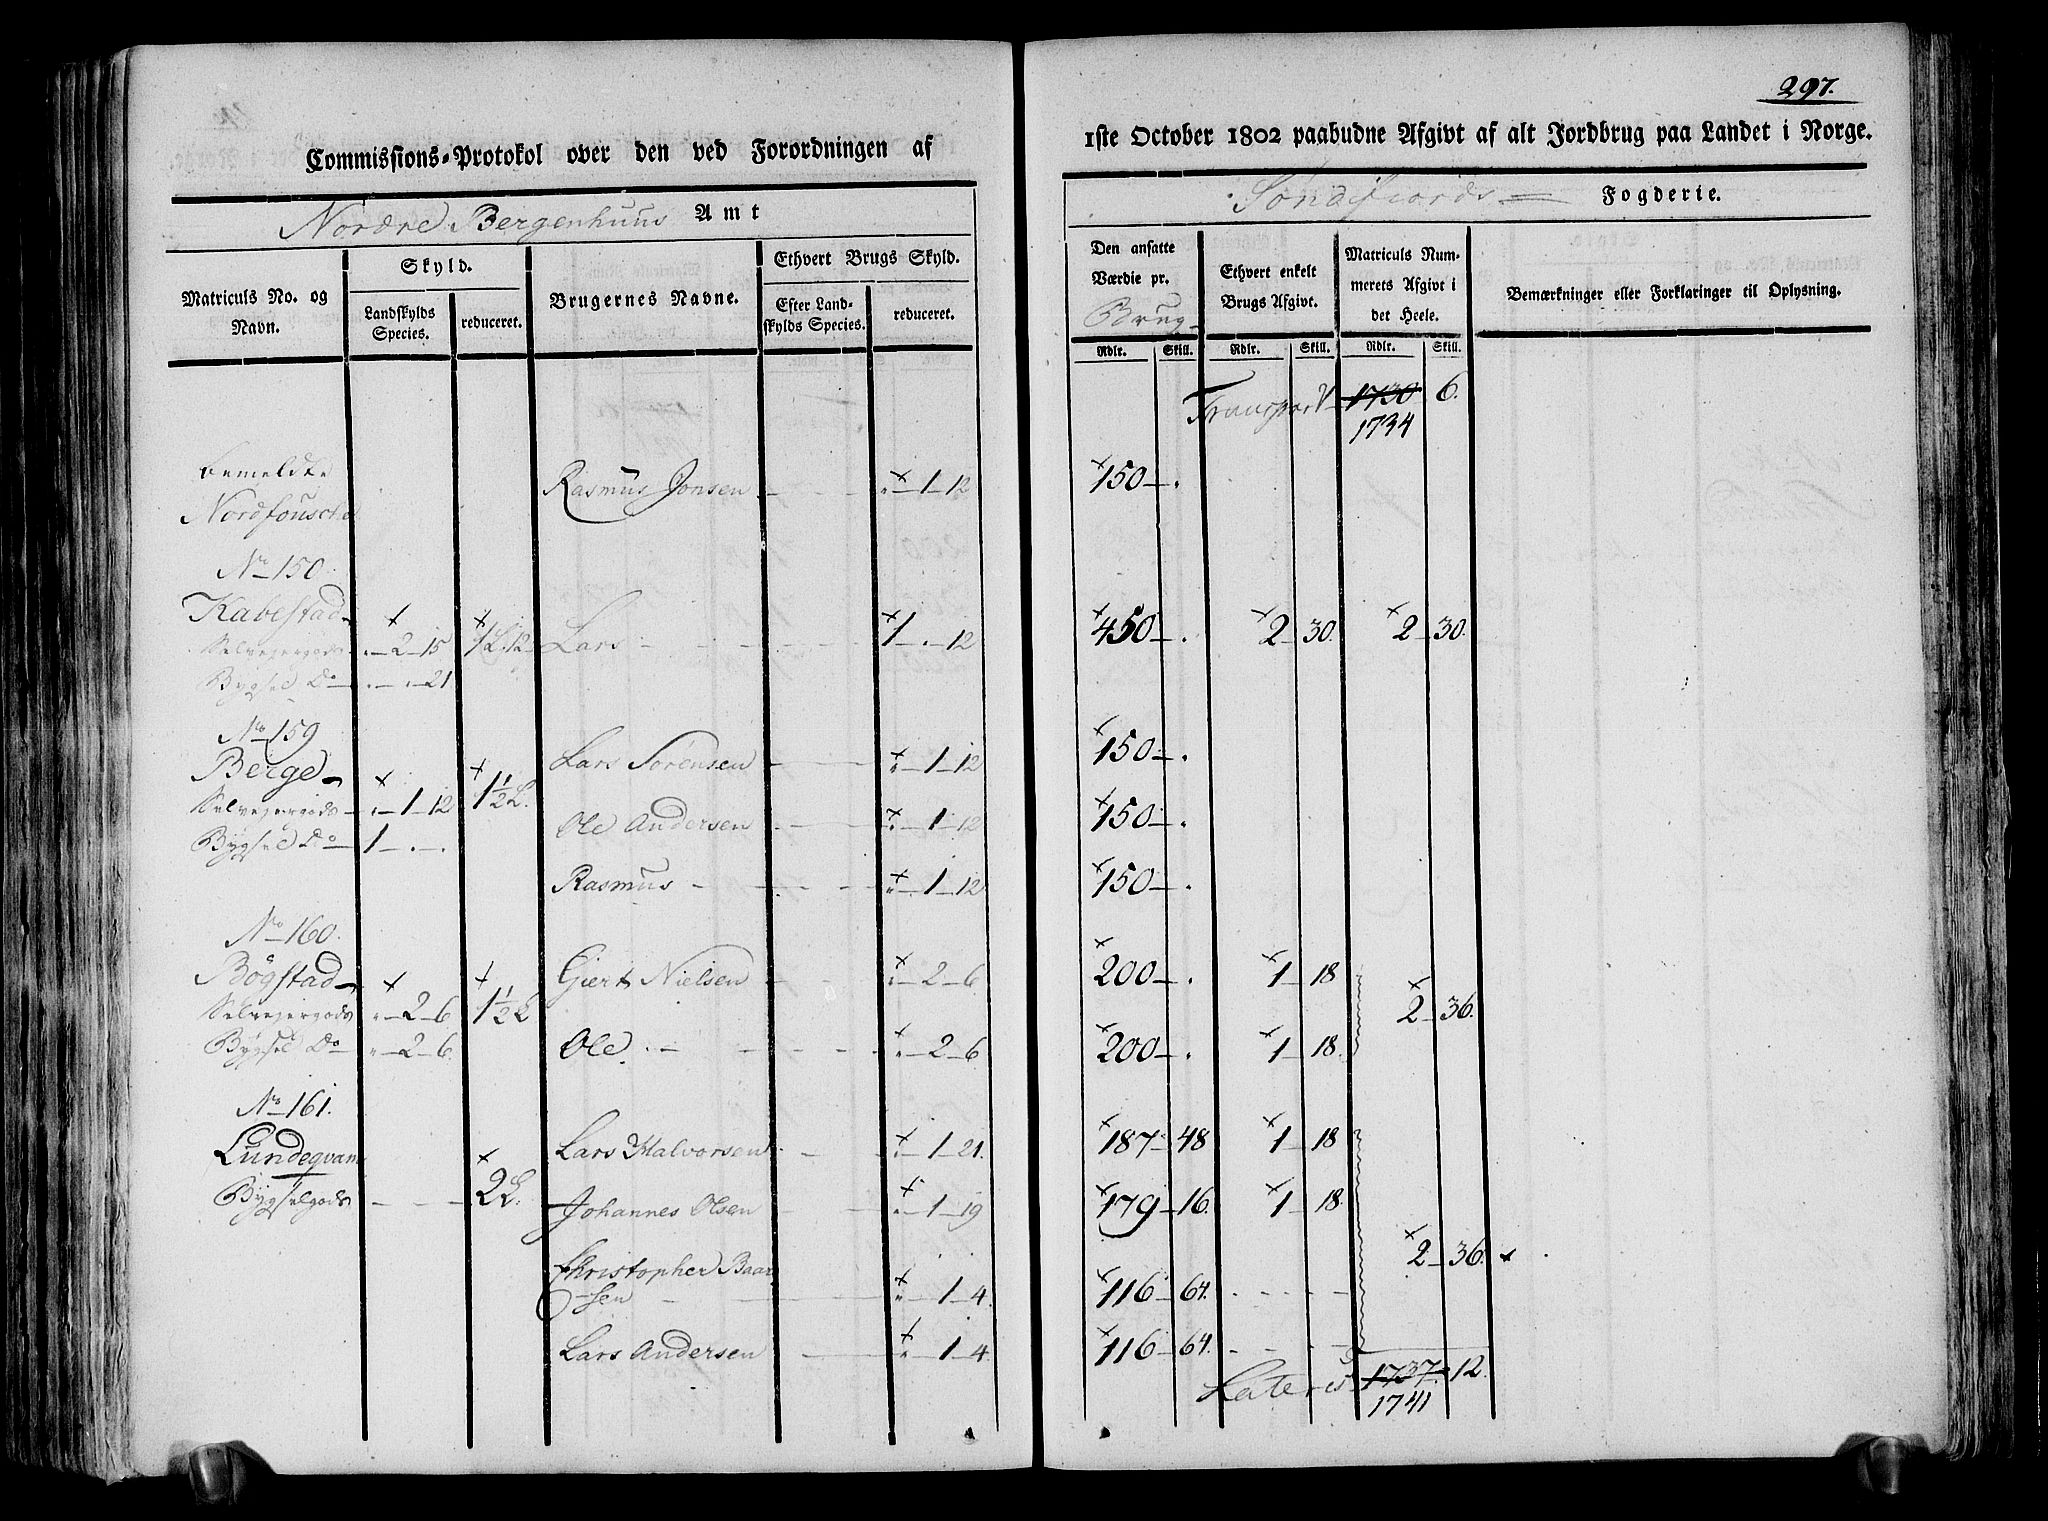 297.
Commissions-Protokol over den ved Forordningen af
1ste October 1802 paabudne Afgivt af alt Jordbrug paa Landet i Norge.
Nordre Bergenhuus Amt
Matriculs No. og Navn.
Skyld.
Landskylds Species.
reduceret.
Brugernes Navne.
Ethvert Brugs Skyld.
Efter Landskylds Species.
reduceret.
bemeldte
Nordfousche
Rasmus Jonsen " 1 12
No 150.
Kabestad
Selvejergods " 2 15 1 L 12 Lars 1 . 12
Bygsel Do . . 21
No 159
Berge Lars Sörensen " 1 12
Selvejergods " 1 12 1½ L. Ole Andersen " 1 12
Bygsel Do 1 . .
Rasmus " 1 12
No 160.
Bögstad Giert Nielsen " 2 6
Selvejergods " 2 6 1½ L
Bygsel Do " 2 6. Ole " 2 6
No 161.
Lundeqvam Lars Halvorsen " 1 21.
Bygselgods 2 L. Johannes Olsen " 1 19
Christopher Baar
sen " 1 4.
Lars Andersen " 1 4
Söndfiords Fogderie.
Den ansatte Værdie pr. Brug
Ethvert enkelt Brugs Afgivt.
Matriculs Nummerets Afgivt i det Heele.
Bemærkninger eller Forklaringer til Oplysning.
Rdlr. Skill. Rdlr. Skill. Rdlr. Skill.
Transport 1730 6.
1734
150 .
450 . 2 30. 2 30.
150 .
150 .
150 .
200 . 1 18
2 36.
200 . 1 18.
187 48 1 18
179 16. 1 18.
2 36.
116 64.
116 64.
Lateris 1737. 12.
1741